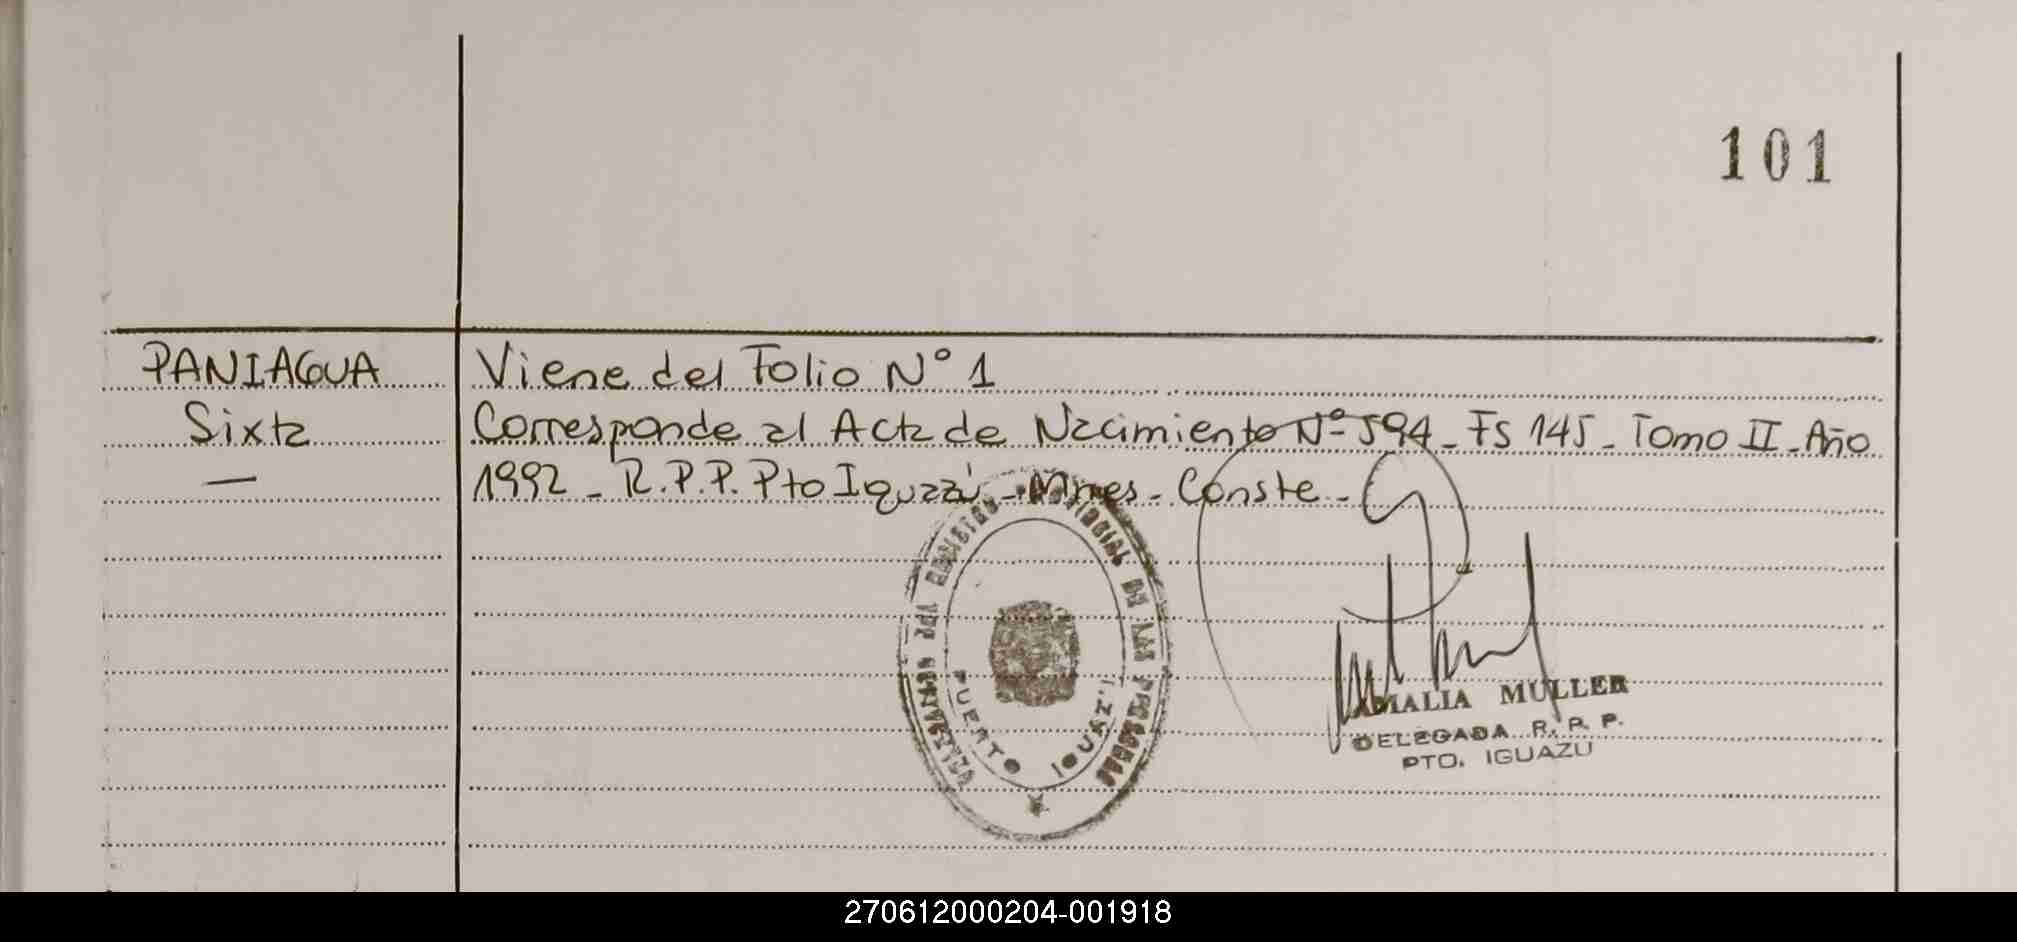 101
PANIAGUA Viene del Folio N° 1
Sixta Corresponde al Acta de Nacimiento Nº 594 _ Fs 145 _ Tomo II _ Año
— 1992 _ R.P.P. Pto Iguazú _ Mnes _ Conste _
REGISTRO PROVINCIAL DE LAS PERSONAS
PUERTO IGUAZÚ
AMALIA MULLER
DELEGADA R. P. P.
PTO. IGUAZU
270612000204-001918